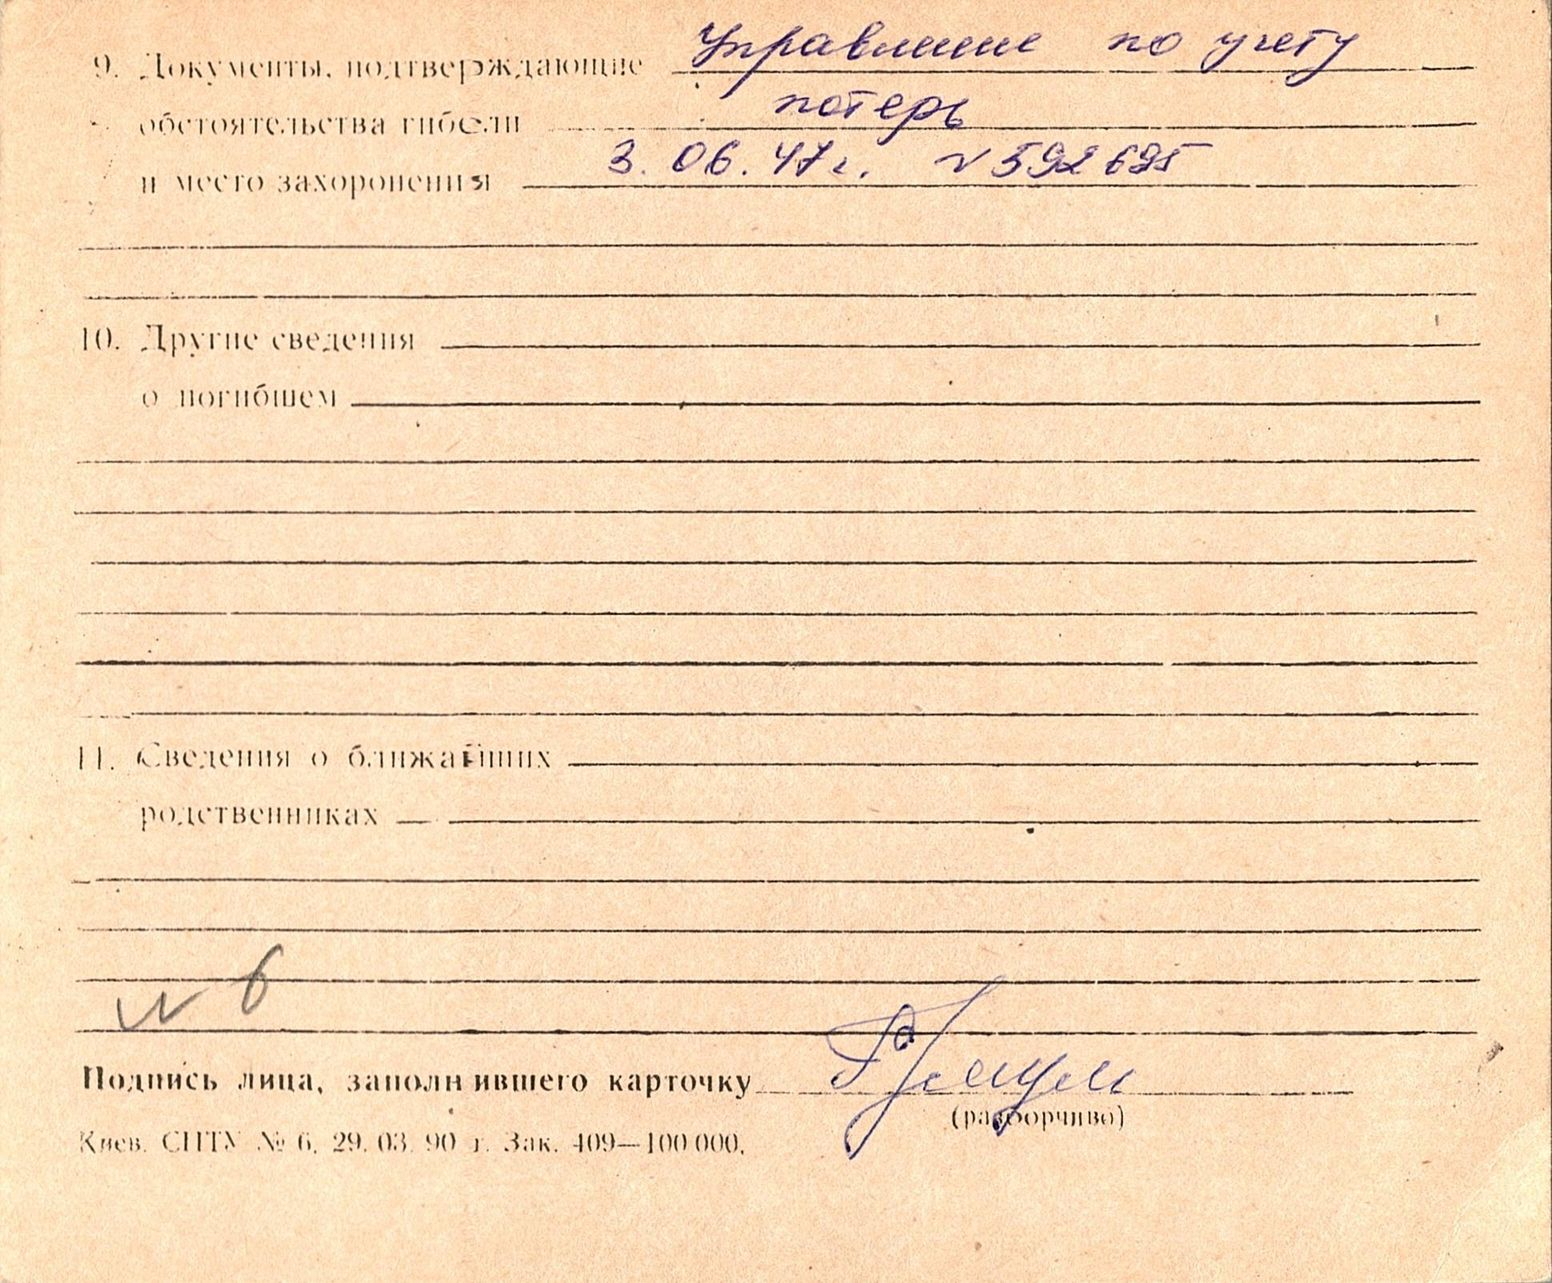 9. Документы, подтверждающие Управление по учету
обстоятельства гибели потерь
и место захоронения 3. 06. 47 г. N 592695
10. Другие сведения
о погибшем
11. Сведения о ближайших
родственниках
N 6
Подпись лица, заполнившего карточку
(разборчиво)
Киев. СПТУ № 6. 29. 03. 90 г. Зак. 409—100 000.